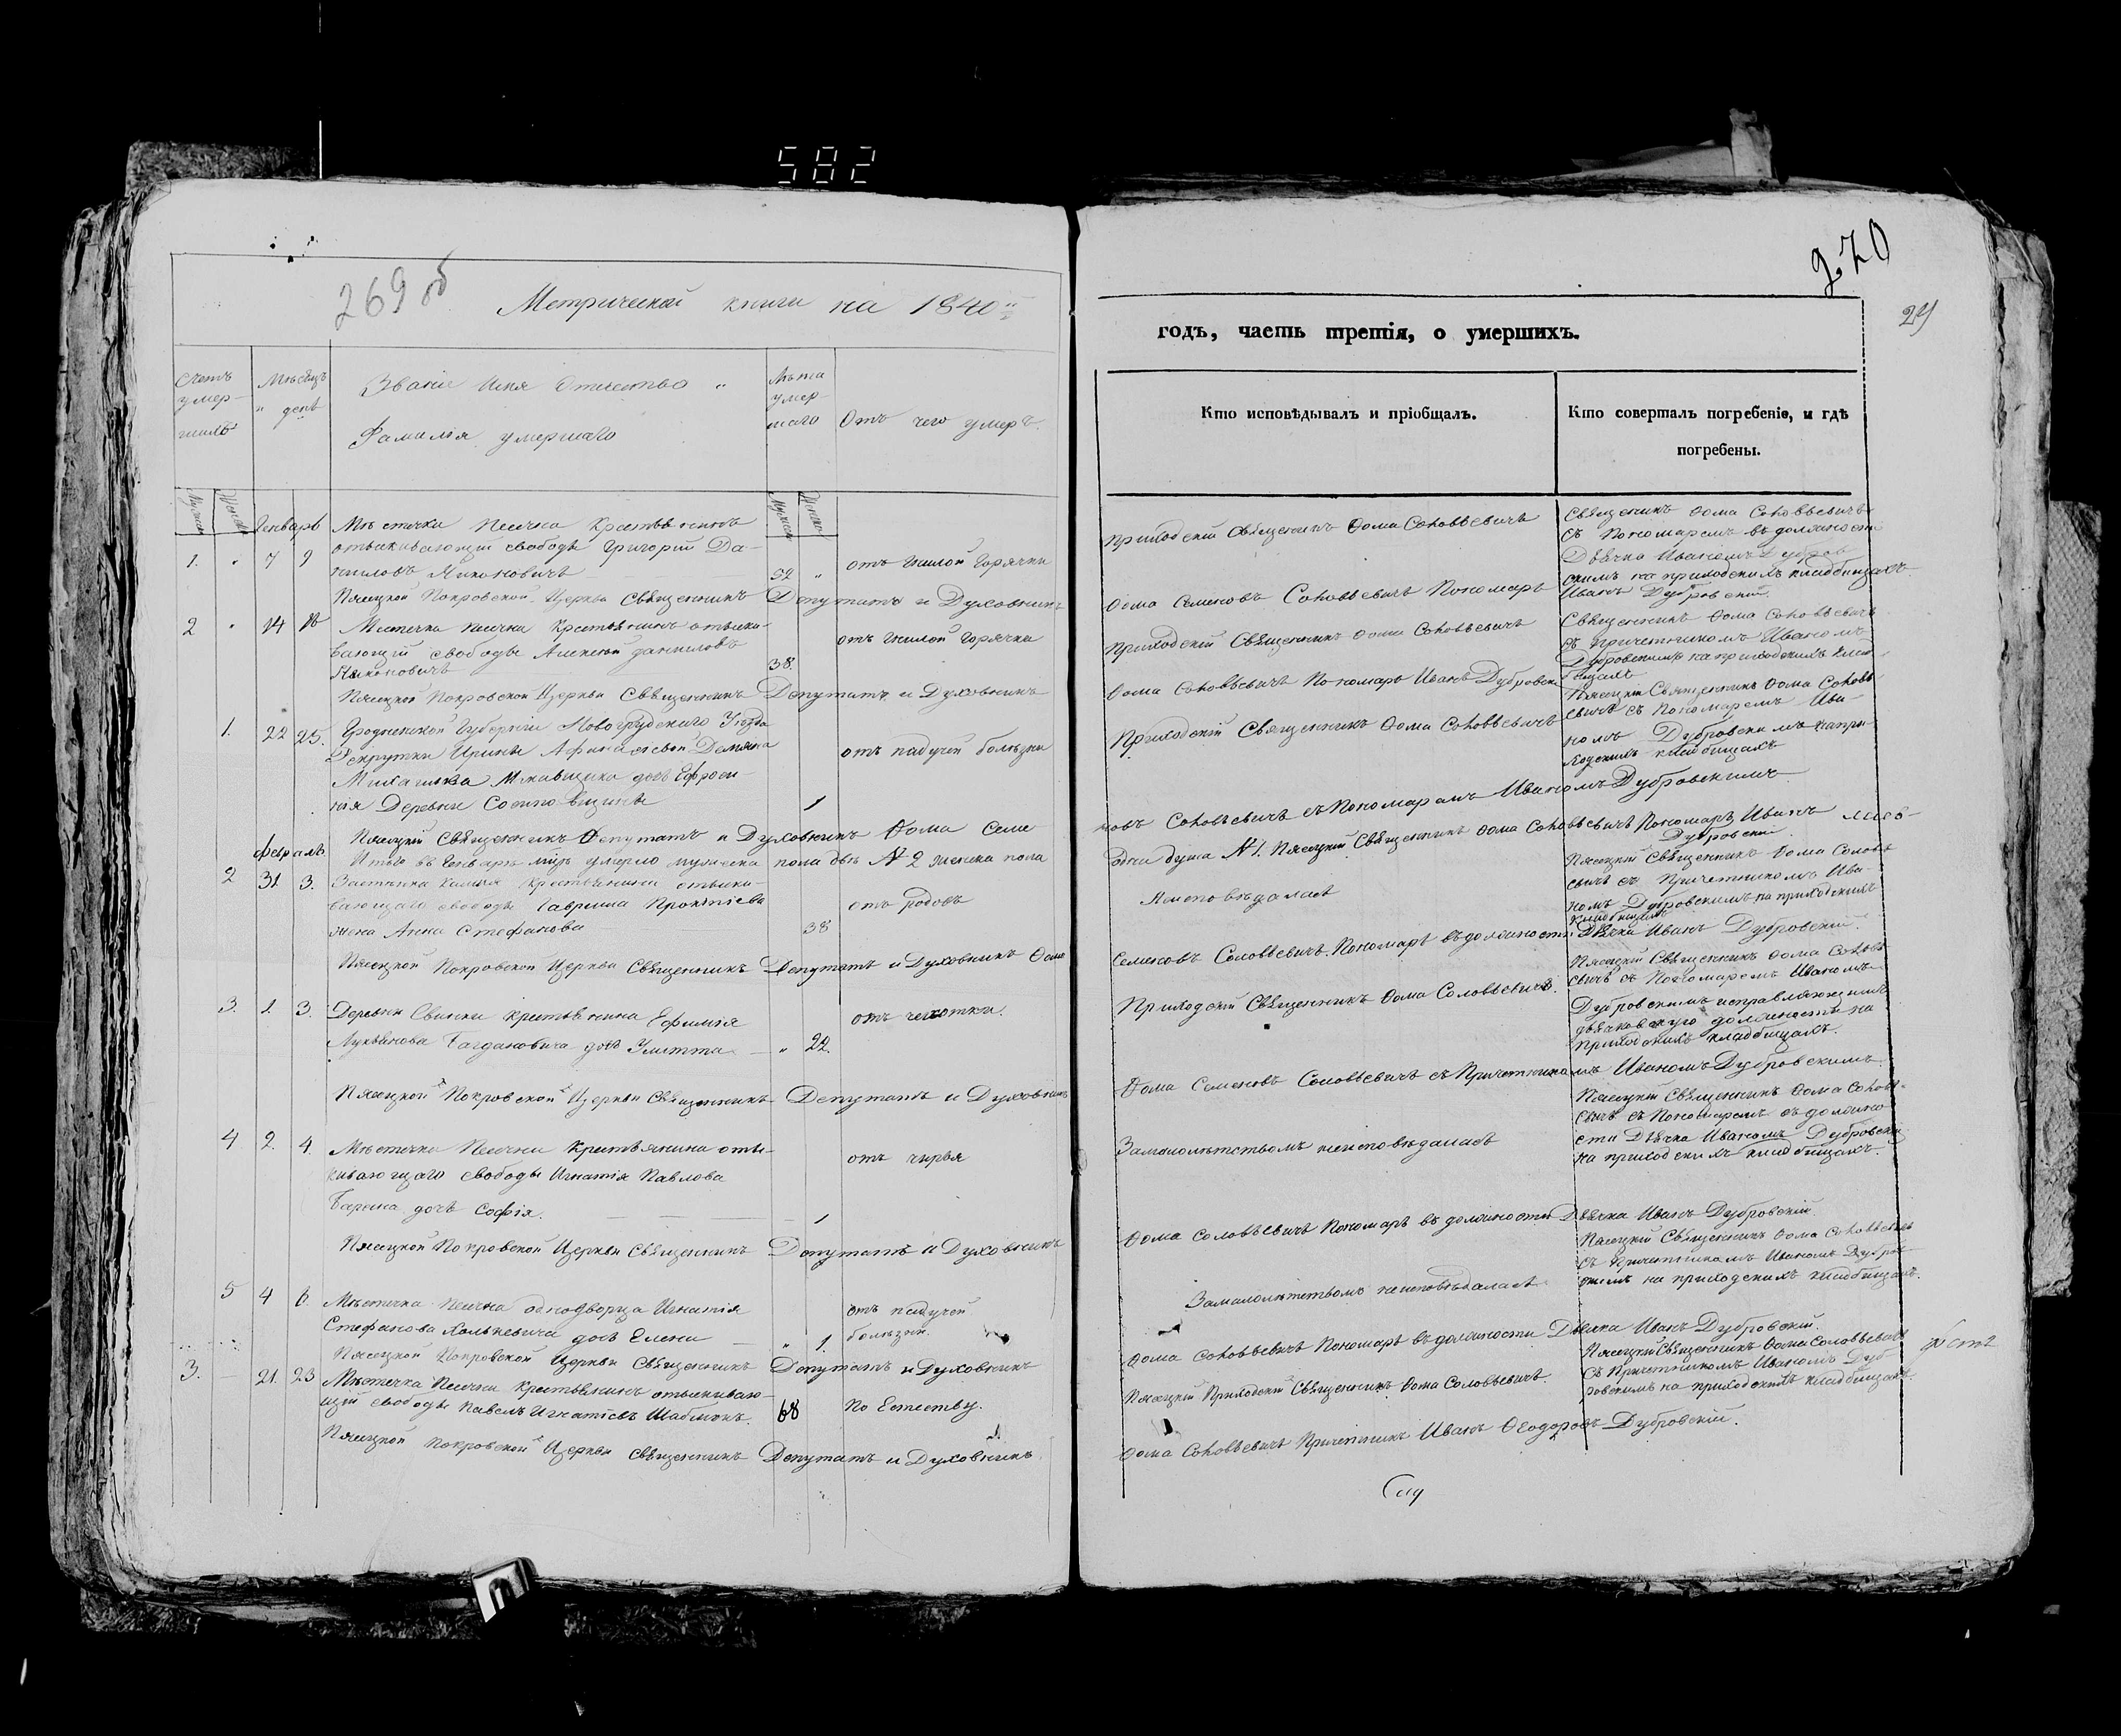 582
269 об
Метрической книги на 1840й
Счетъ умершихъ
Мѣсяцъ и день
Званіе Имя Отечество и
Фамилія умершаго
Лѣта умершаго
Отъ чего умеръ.
Мужеска
Женска
Мужеска
Женска
Генварь
Мѣстечка Песочна Крестьянинъ
отыскивающій свободы Григорій Да-
1. " 7 9
ниловъ Никоновичъ
52 "
отъ гнилой горячки
Пясецкой Покровской Церкви Священникъ Депутатъ и Духовникъ
2 " 14 16
Местечка Песочна Крестьянинъ отыски-
вающій свободы Алексѣй Даниловъ
Никоновичъ
38.
отъ гнилой горячки
Пясецкой Покровской Церкви Священникъ Депутатъ и Духовникъ
1. 22 25.
Гродненской Губерніи Новогрудскаго Уѣзда
Рекрутки Ирины Афанасьевой Демьяна
Михайлова дочь Ефроси-
нія Деревни
1
отъ падучей болѣзни
Пясецкій Священникъ Депутатъ и Духовникъ Ѳома Семе
Февраль
Итого въ Генварѣ мцѣ умерло мужеска пола двѣ № 2 женска пола
2 31. 3.
Застѣнка крестьянина отыски-
вающаго свободы Гаврiила Прокопiева
жена Анна Стефанова
38
отъ родовъ
Пясецкой Покровской Церкви Священникъ Депутатъ и Духовникъ Ѳома
3. 1. 3.
Деревни Свинки крестьянина Ефимія
Лукьянова Багдановича дочь Улитта
" 22.
отъ чехотки.
Пясецкой Покровской Церкви Священникъ Депутатъ и Духовникъ
4 2. 4.
Мѣстечка Песочни Крестьянина оты-
скивающаго свободы Игнатія Павлова
дочь Софія.
1
отъ чирья
Пясецкой Покровской Церкви Священникъ Депутатъ и Духовникъ
5 4 6.
Мѣстечка Песочна однодворца Игнатія
Стефанова дочь Елена
" 1
отъ падучей
болѣзни.
Пясецкой Покровской Церкви Священникъ Депутатъ и Духовникъ
3. 21. 23
Мѣстечка Песочни Крестьянинъ отыскиваю-
щій свободы Павелъ Игнатіевъ
68
По Естеству.
Пясецкой Покровской Церкви Священникъ Депутатъ и Духовникъ
270
годъ, часть третія, о умершихъ.
Кто исповѣдывалъ и пріобщалъ.
Кто совершалъ погребеніе, и гдѣ
погребены.
Приходскій Священникъ Ѳома Соловьевичъ
Священникъ Ѳома Соловьевичъ
съ Пономаремъ въ должности
Дьячка Иваномъ Дубров-
скимъ на приходскихъ кладбищахъ.
Ѳома Семеновъ Соловьевичъ Пономарь Иванъ Дубровскій.
Приходскій Священникъ Ѳома Соловьевичъ
Священникъ Ѳома Соловьевичъ
съ причетникомъ Иваномъ
Дубровскимъ на приходскихъ клад-
бищахъ
Ѳома Соловьевичъ Пономарь Иванъ Дубровскій
Приходскій Священникъ Ѳома Соловьевичъ
Пясецкій Священникъ Ѳома Соловь-
евичъ съ Пономаремъ Ива-
номъ Дубровскимъ на при-
ходскихъ кладбищахъ
новъ Соловьевичъ съ Пономаремъ Иваномъ Дубровскимъ
одна душа № 1. Пясецкій Священникъ Ѳома Соловьевичъ Пономарь Иванъ
Дубровскій.
Неисповѣдалась
Пясецкій Священникъ Ѳома Соловь
евичъ съ Причетникомъ Ива-
номъ Дубровскимъ на приходскихъ
кладбищахъ
Семеновъ Соловьевичъ. Пономарь въ должности Дьячка Иванъ Дубровскій.
Приходскій Священникъ Ѳома Соловьевичъ.
Пясецкій Священникъ Ѳома Соловь
евичъ съ Пономаремъ Иваномъ
Дубровскимъ исправляющимъ
дьячковскую должность на
приходскихъ кладбищахъ.
Ѳома Семеновъ Соловьевичъ съ Причетникомъ Иваномъ Дубровскимъ
Замалолѣтствомъ неисповѣдалась
Пясецкій Священникъ Ѳома Соловь-
евичъ съ Пономаремъ въ должно
сти Дьячка Иваномъ Дубровски
на приходскихъ кладбищахъ.
Ѳома Соловьевичъ Пономарь въ должности Дьячка Иванъ Дубровскій.
Замалолѣтствомъ неисповѣдалась
Пясецкій Священникъ Ѳома Соловьевичъ
съ причетникомъ Иваномъ Дубров-
скимъ на приходскихъ кладбищахъ.
Ѳома Соловьевичъ Пономарь въ должности Дьячка Иванъ Дубровскій.
Пясецкій Приходскій Священникъ Ѳома Соловьевичъ.
Пясецкій Священникъ Ѳома Соловьевичъ
съ Причетникомъ Иваномъ Дуб
ровскимъ на приходскихъ кладбищахъ.
Ѳома Соловьевичъ Причетникъ Иванъ Ѳеодоровъ Дубровскій.